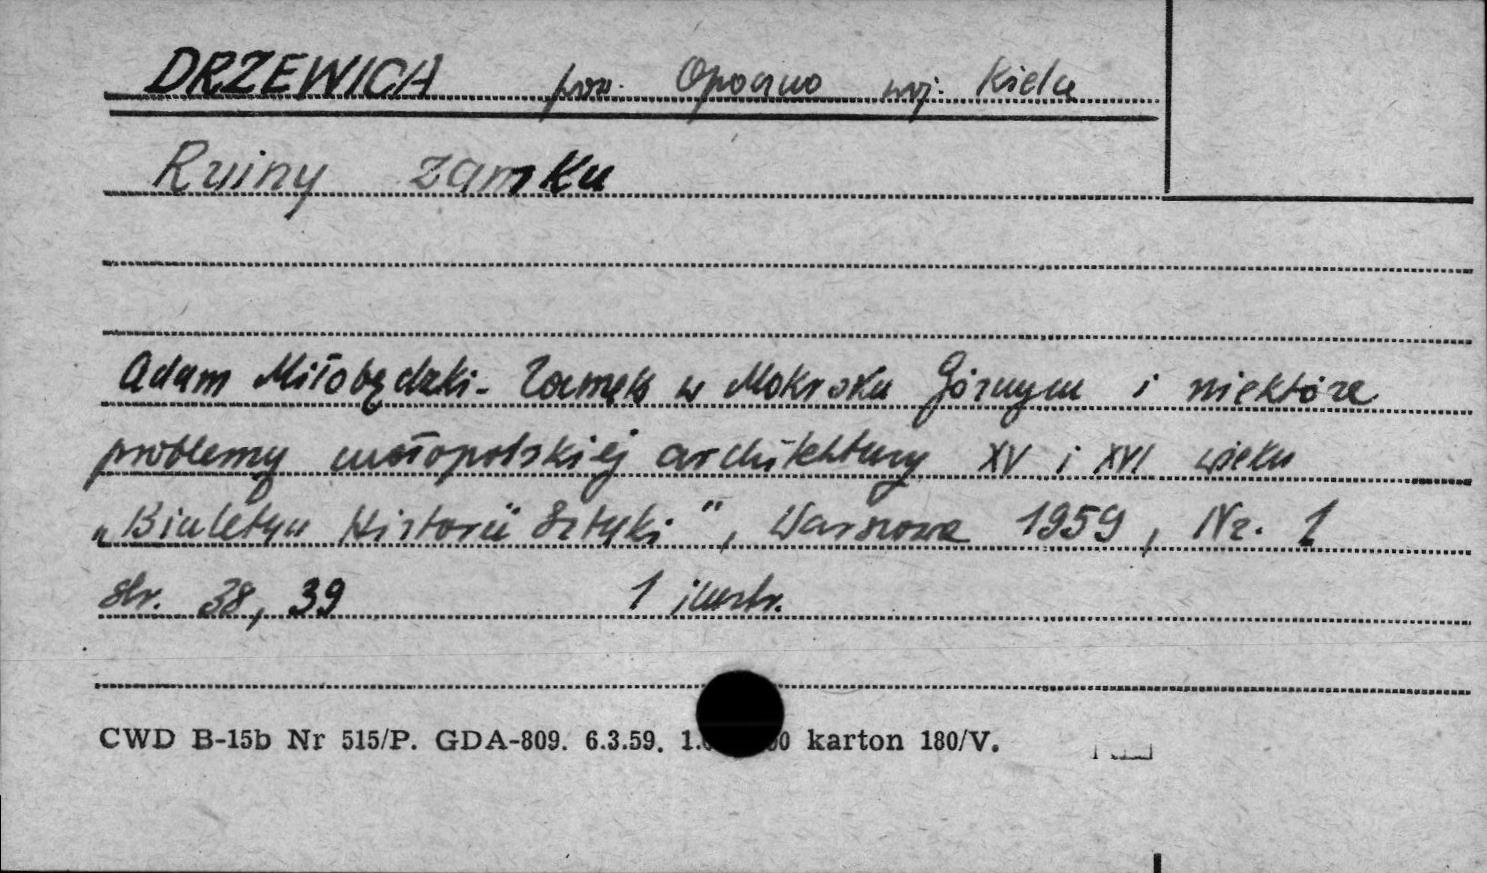 DRZEWICA pow. Opoczno woj. Kielce
Ruiny zamku
Adam Miłobędzki - Zamek w Mokrsku Górnym i niektóre
problemy małopolskiej architektury XV i XVI wieku
„Biuletyn Historii Sztuki", Warszawa 1959, Nr. 1
str. 38, 39 1 ilustr.
CWD B-15b Nr 515/P. GDA-809. 6.3.59. karton 180/V.